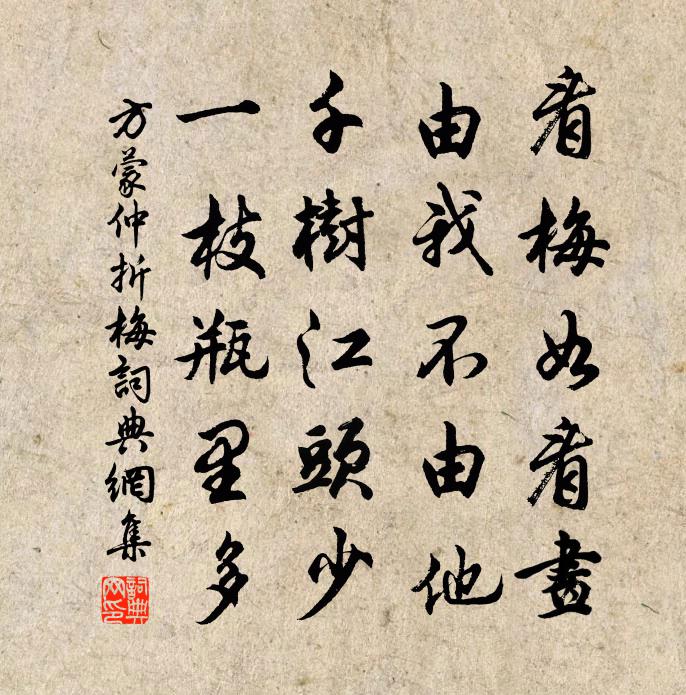 看梅如看畫
由我不由他
千樹江頭少
一枝瓶里多
方蒙仲折梅詞典網集
詞典網印